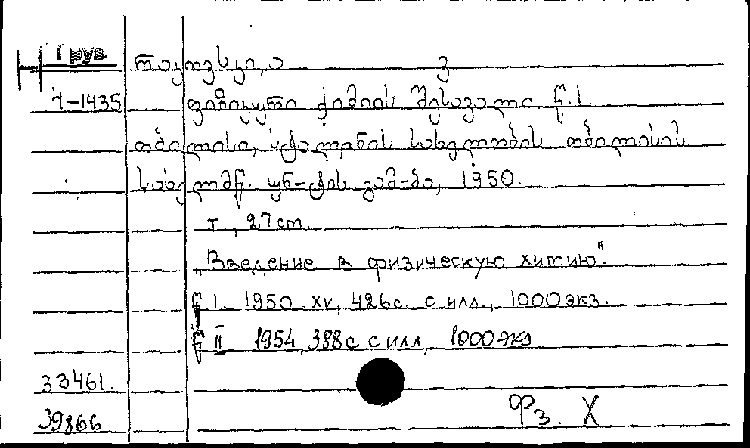 Груз
ფიზიკური ქიმიის შესავალი წ. I
Ч-1435
თბილისი, სტალინის სახელობის თბილისის
სახელმწ. უნ-ტის გამ-ბა, 1950.
т, 27 cm
„Введение в физическую химию".
წ I. 1950. XV, 426 с. с илл., 1000 экз.
წ II 1954, 388 с с илл, 1000 экз
33461.
39866
Фз. Х